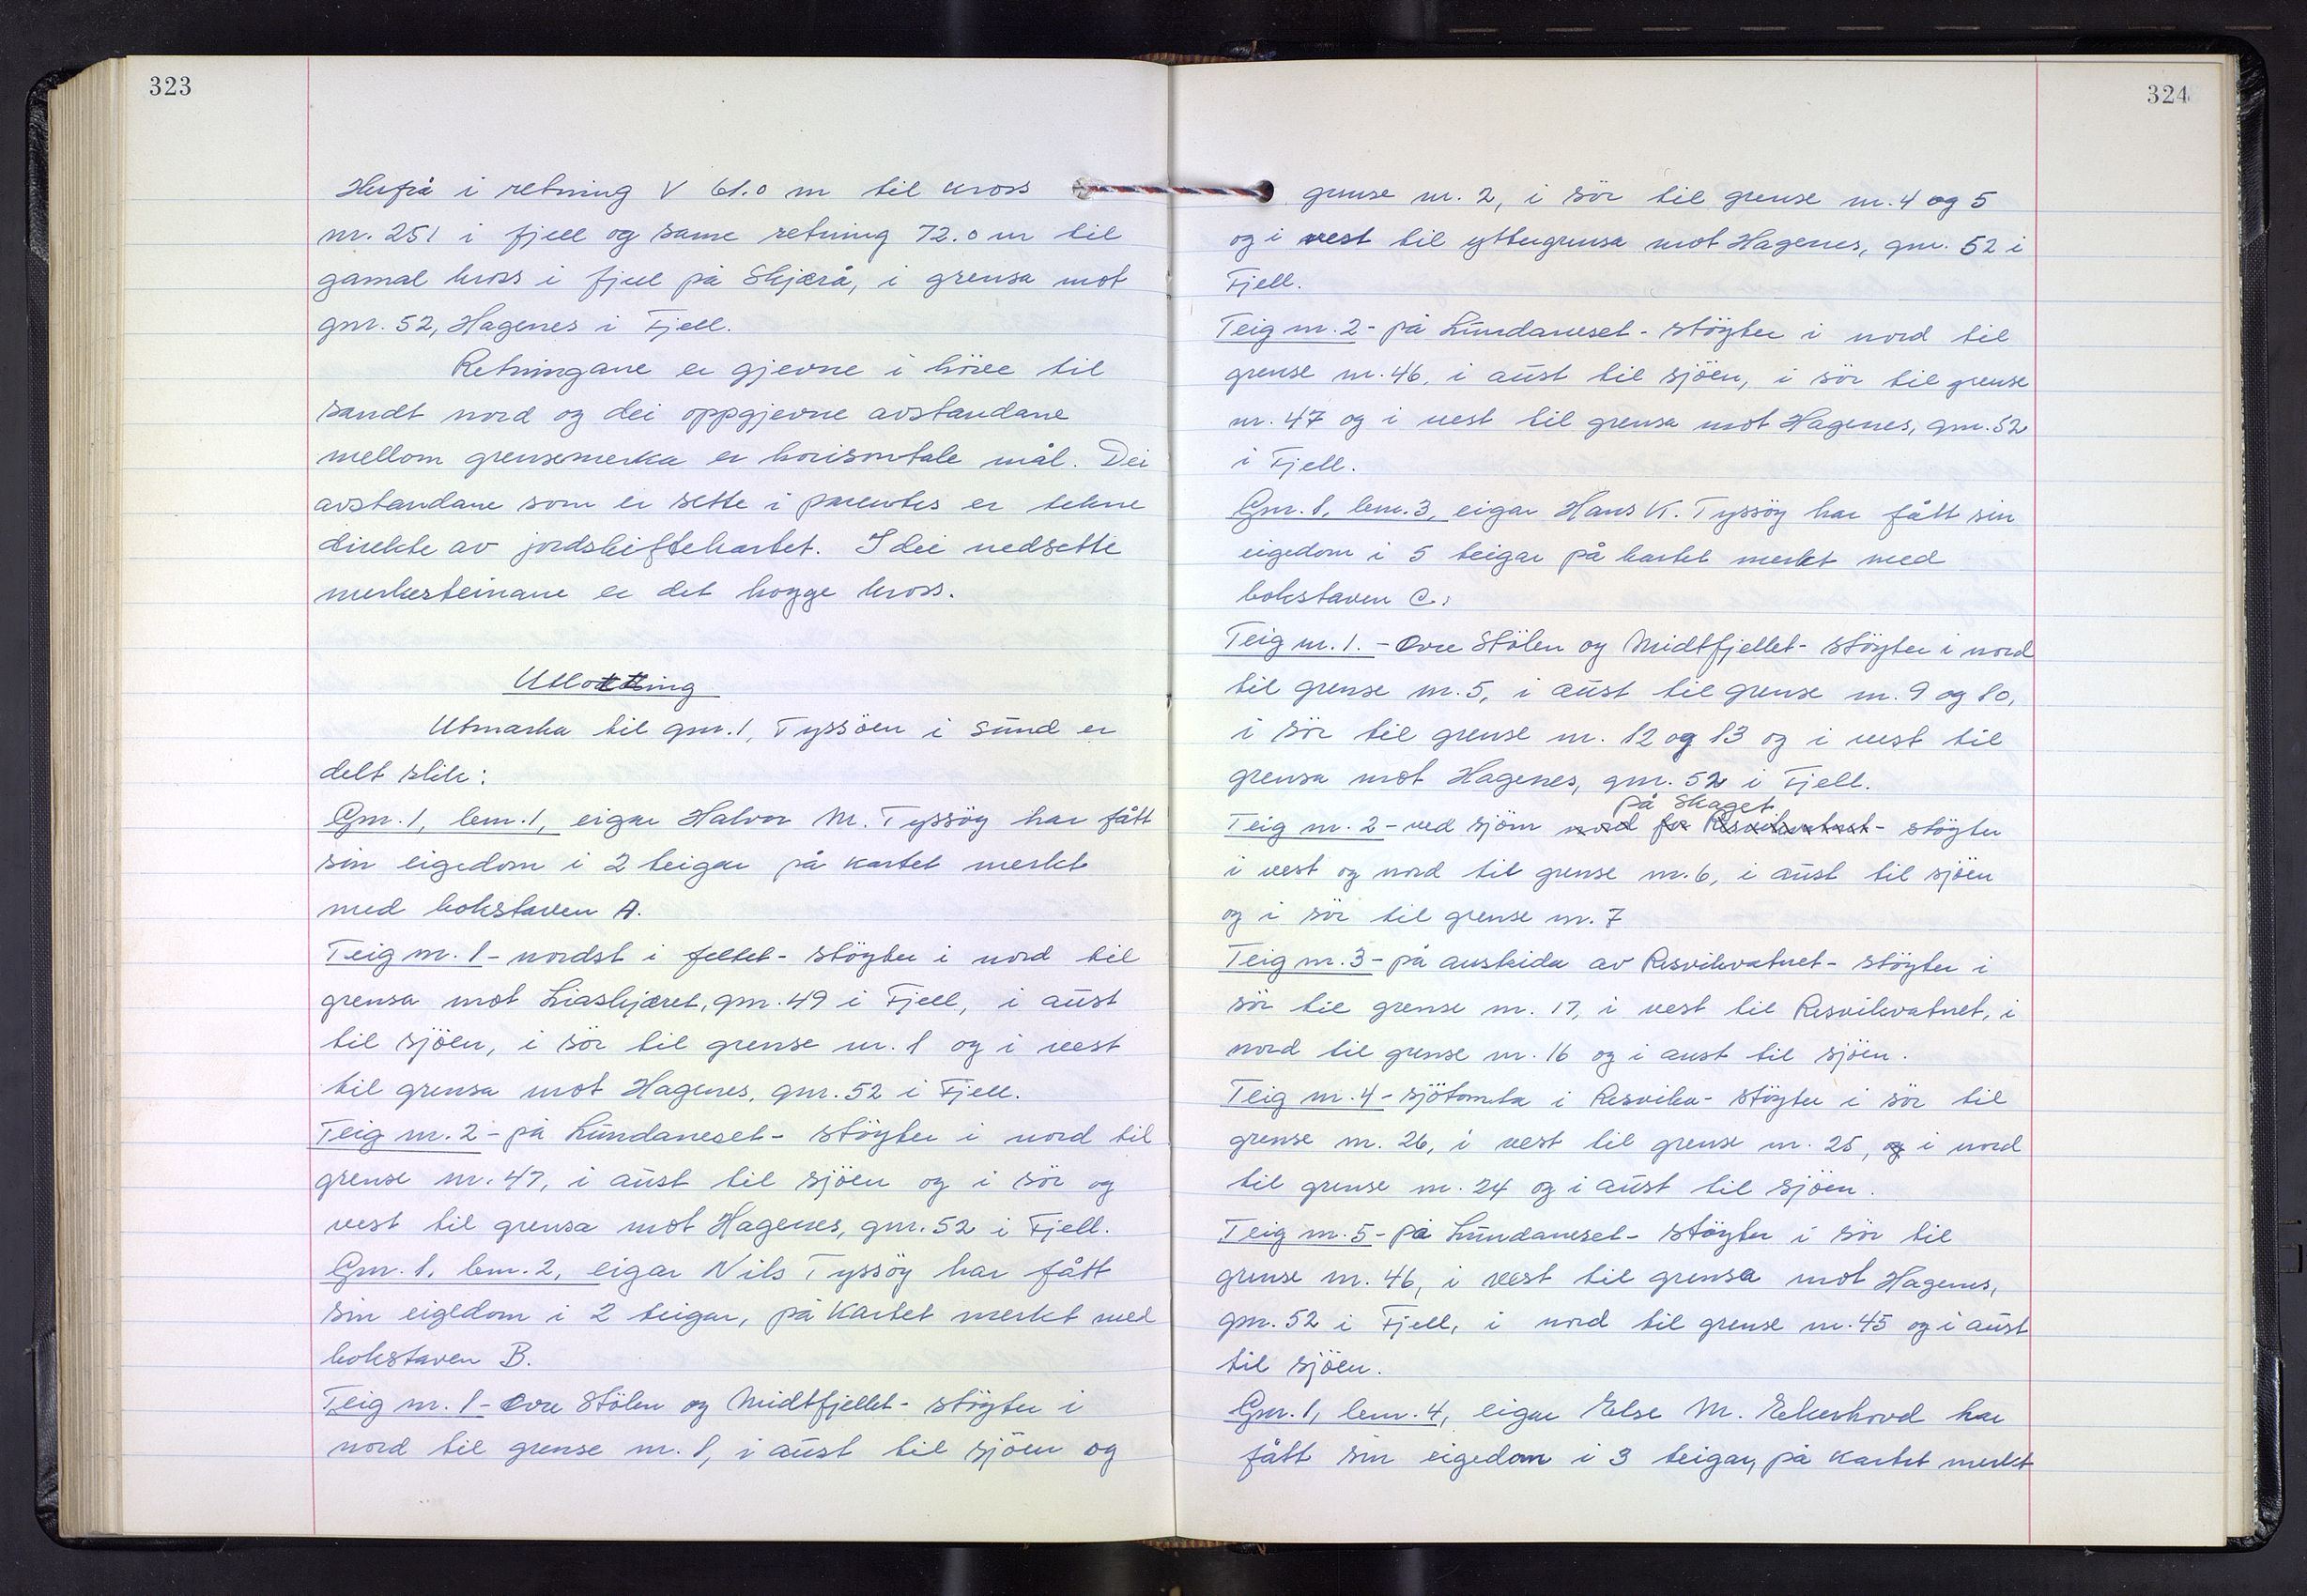 323
Herfrå i retning V 61.0 m til kross
nr. 251 i fjell og same retning 72.0 m til
gamal kross i fjell på Skjærå, i grensa mot
gnr. 52, Hagenes i Fjell.
Retningane er gjevne i höve til
sandt nord og dei oppgjevne avstandane
mellom grensemerka er horisontale mål. Dei
avstandane som er sette i parentes er tekne
direkte av jordskiftekartet. I dei nedsette
merkesteinane er det hogge kross.
Utlotting
Utmarka til gnr. 1, Tyssöen i Sund er
delt slik:
Gnr. 1, bnr. 1, eigar Halvor M. Tyssöy har fått
sin eigedom i 2 teigar på kartet merkt
med bokstaven A.
Teig nr. 1 - nordst i feltet - stöyter i nord til
grensa mot Liaskjæret, gnr. 49 i Fjell, i aust
til sjöen, i sör til grense nr. 1 og i vest
til grensa mot Hagenes, gnr. 52 i Fjell.
Teig nr. 2 - på Lundaneset - stöyter i nord til
grense nr. 47, i aust til sjöen og i sör og
vest til grensa mot Hagenes, gnr. 52 i Fjell.
Gnr. 1, bnr. 2, eigar Nils Tyssöy har fått
sin eigedom i 2 teigar, på kartet merkt med
bokstaven B.
Teig nr. 1 - Övre Stölen og Midtfjellet - stöyter i
nord til grense nr. 1, i aust til sjöen og
324
grense nr. 2, i sör til grense nr. 4 og 5
og i vest til yttergrensa mot Hagenes, gnr. 52 i
Fjell.
Teig nr. 2 - på Lundaneset - stöyter i nord til
grense nr. 46, i aust til sjöen, i sör til grense
nr. 47 og i vest til grensa mot Hagenes, gnr. 52
i Fjell.
Gnr. 1, bnr. 3, eigar Hans K. Tyssöy har fått sin
eigedom i 5 teigar på kartet merkt med
bokstaven C:
Teig nr. 1. - Övre Stölen og Midtfjellet - stöyter i nord
til grense nr. 5, i aust til grense nr. 9 og 10,
i sör til grense nr. 12 og 13 og i vest til
grensa mot Hagenes, gnr. 52 i Fjell.
på Skaget
Teig nr. 2 - ved sjöen nord for Resvikvatnet - stöyter
i vest og nord til grense nr. 6, i aust til sjöen
og i sör til grense nr. 7
Teig nr. 3 - på austsida av Resvikvatnet - stöyter i
sör til grense nr. 17, i vest til Resvikvatnet, i
nord til grense nr. 16 og i aust til sjöen.
Teig nr. 4 - sjötomta i Resvika - stöyter i sör til
grense nr. 26, i vest til grense nr. 25, og i nord
til grense nr. 24 og i aust til sjöen.
Teig nr. 5 - på Lundaneset - stöyter i sör til
grense nr. 46, i vest til grensa mot Hagenes,
gnr. 52 i Fjell, i nord til grense nr. 45 og i aust
til sjöen.
Gnr. 1, bnr. 4, eigar Else M. Ekerhovd har
fått sin eigedom i 3 teigar, på kartet merkt